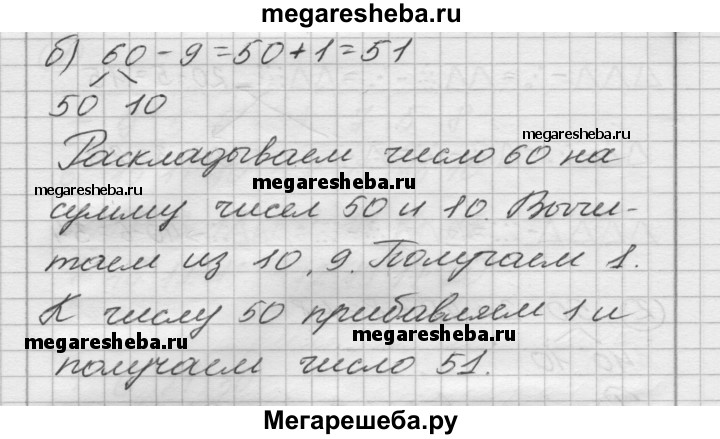 megaresheba.ru
б) 60 - 9 = 50 + 1 = 51
50 10
Раскладываем число 60 на
megaresheba.ru
megaresheba.ru
megaresheba.ru
сумму чисел 50 и 10. Вычи-
таем из 10, 9. Получаем 1.
К числу 50 прибавляем 1 и
megaresheba.ru
megaresheba.ru
получаем число 51.
Мегарешеба.ру